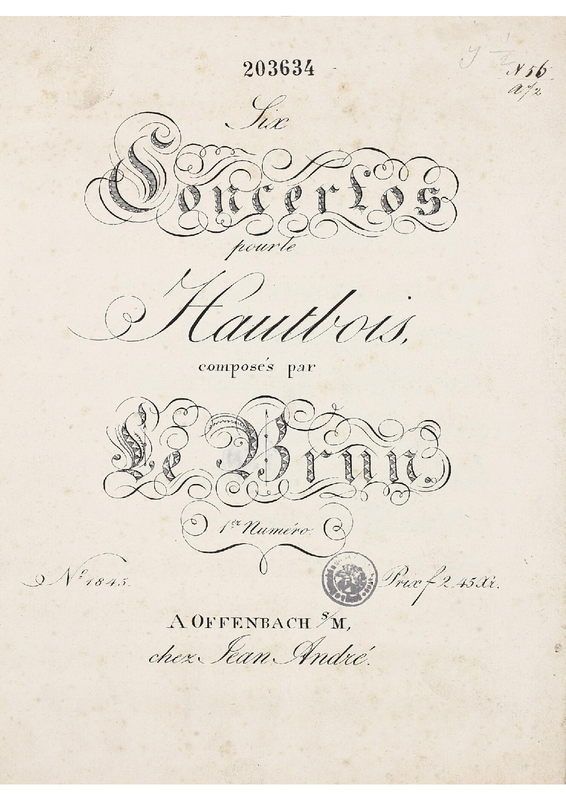 203634
N 56.
Six
Concertos
pour le
Hautbois,
composés par
Le Brun.
1er Numéro.
No 1845.
Prix f 2. 45 Xr.
A OFFENBACH s/M,
chez Jean André.